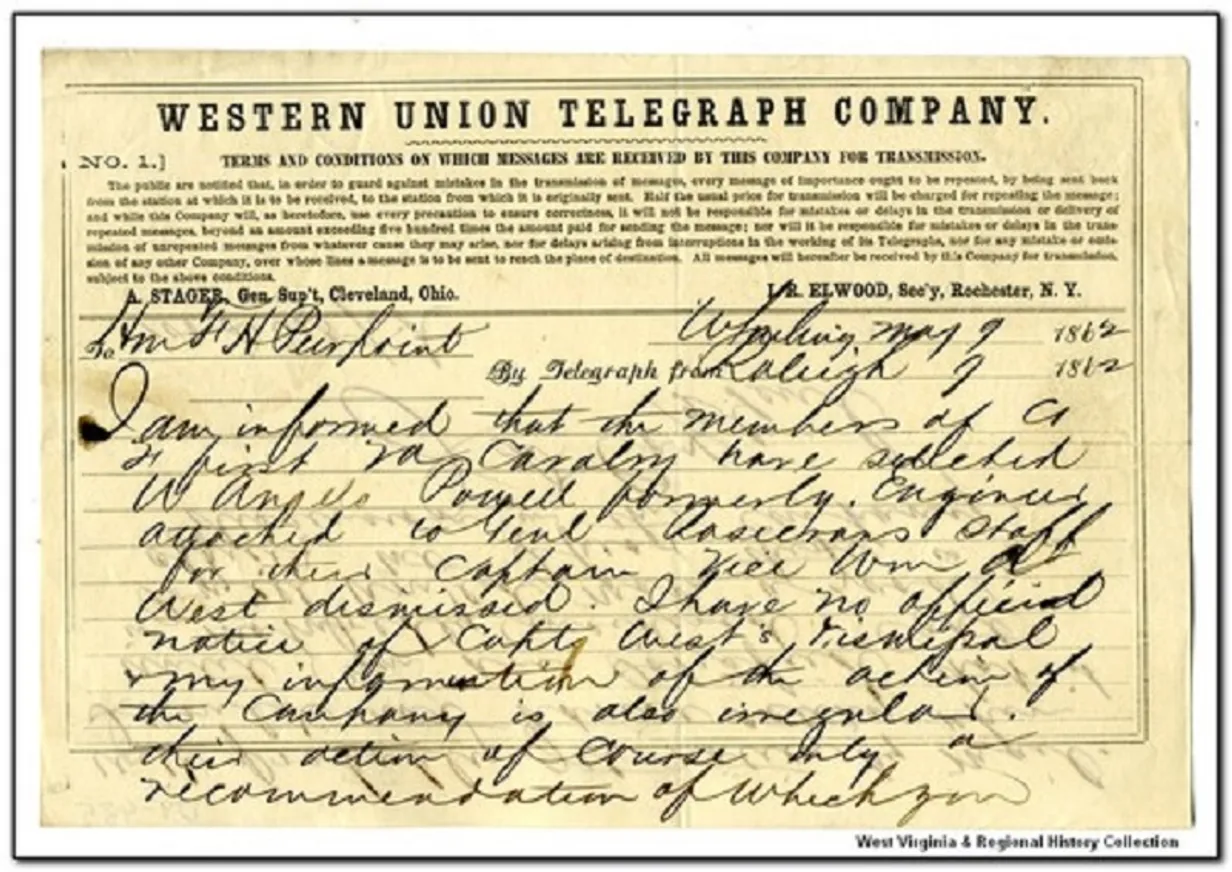 WESTERN UNION TELEGRAPH COMPANY.
NO. 1.]
TERMS AND CONDITIONS ON WHICH MESSAGES ARE RECEIVED BY THIS COMPANY FOR TRANSMISSION.
The public are notified that, in order to guard against mistakes in the transmission of messages, every message of importance ought to be repeated, by being sent back
from the station at which it is to be received, to the station from which it is originally sent. Half the usual price for transmission will be charged for repeating the message;
and while this Company will, as heretofore, use every precaution to ensure correctness, it will not be responsible for mistakes or delays in the transmission or delivery of
repeated messages, beyond an amount exceeding five hundred times the amount paid for sending the message; nor will it be responsible for mistakes or delays in the trans-
mission of unrepeated messages from whatever cause they may arise, nor for delays arising from interruptions in the working of its Telegraphs, nor for any mistake or omis-
sion of any other Company, over whose lines a message is to be sent to reach the place of destination. All messages will hereafter be received by this Company for transmission,
subject to the above conditions.
A. STAGER, Gen. Sup't, Cleveland, Ohio.
J. R. ELWOOD, Sec'y, Rochester, N. Y.
Wheeling May 9 1862
To Hon F H Peirpoint
By Telegraph from Raleigh 9 1862
I am informed that the members of Co
first Va Cavalry have selected
W Angelo Powell formerly Engineer
attached to Genl Rosecrans staff
for their Captain vice Wm A
West dismissed. I have no official
notice of Capt West's dismissal
& my information of the action of
the Company is also irregular.
their action of course only a
recommendation of which you
West Virginia & Regional History Collection